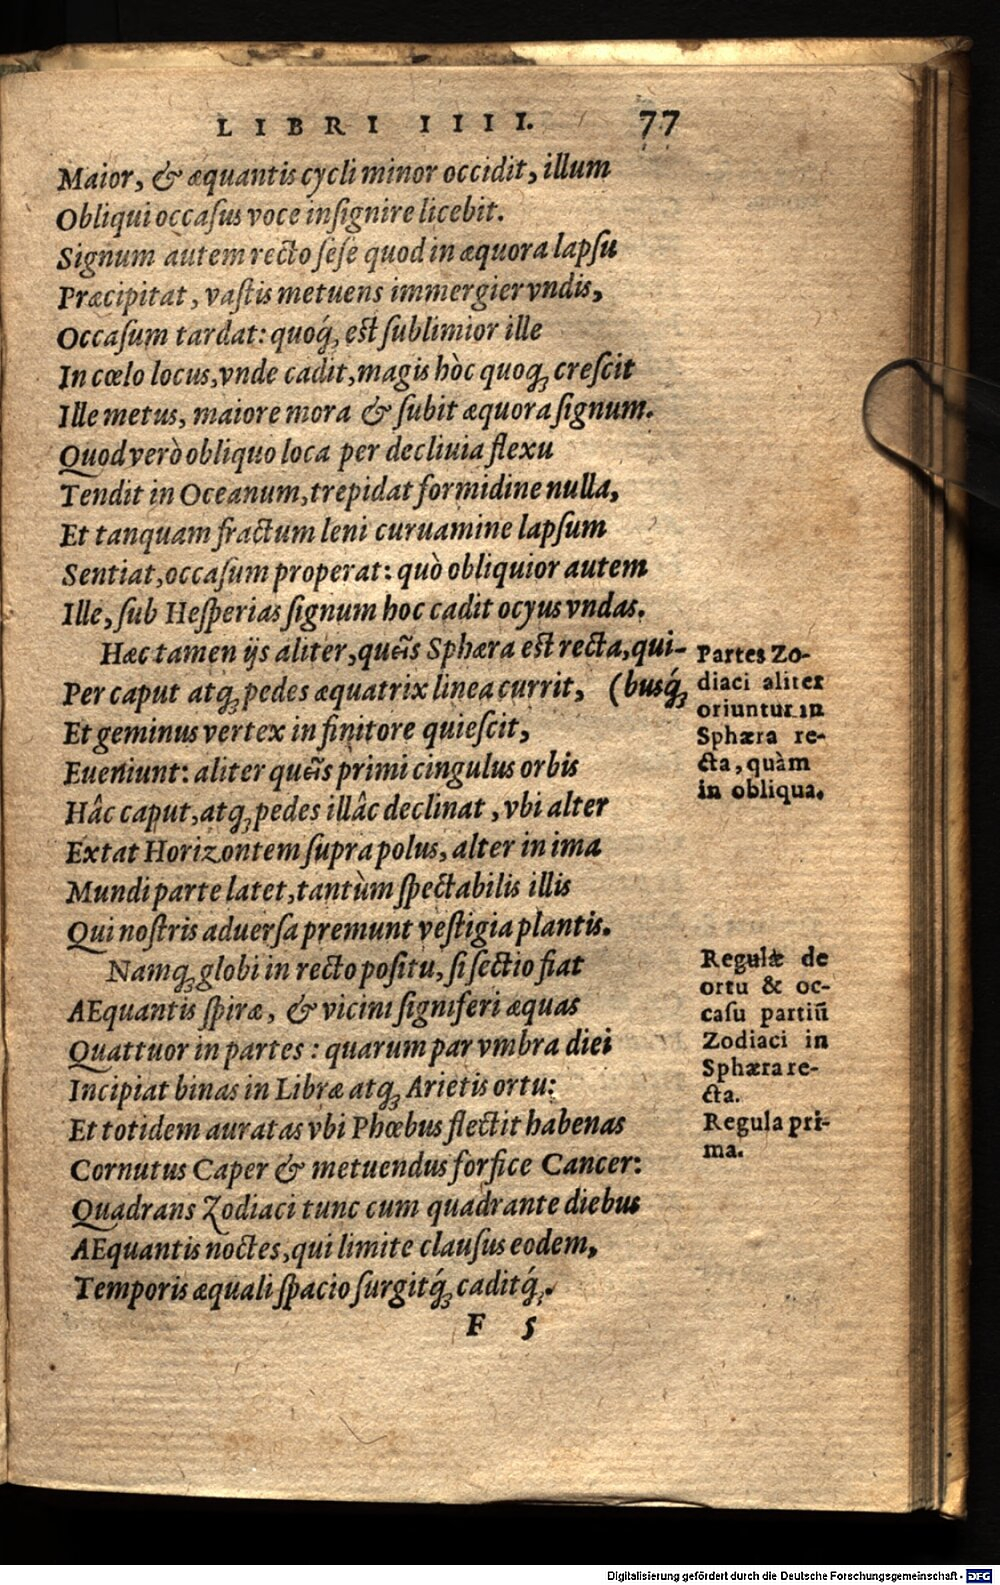 LIBRI IIII. 77
Maior, & æquantis cycli minor occidit, illum
Obliqui occaſus voce inſignire licebit.
Signum autem recto ſeſe quod in æquora lapſu
Præcipitat, vaſtis metuens immergier vndis,
Occaſum tardat: quoq́ꝫ eſt ſublimior ille
In cœlo locus, vnde cadit, magis hòc quoqꝫ creſcit
Ille metus, maiore mora & ſubit æquora ſignum.
Quod verò obliquo loca per decliuia flexu
Tendit in Oceanum, trepidat formidine nulla,
Et tanquam fractum leni curuamine lapſum
Sentiat, occaſum properat: quò obliquior autem
Ille, ſub Heſperias ſignum hoc cadit ocyus vndas.
Hæc tamen ijs aliter, queîs Sphæra eſt recta, qui-
Per caput atqꝫ pedes æquatrix linea currit, (buśqꝫ
Et geminus vertex in finitore quieſcit,
Eueniunt: aliter queîs primi cingulus orbis
Hâc caput, atqꝫ pedes illâc declinat, vbi alter
Extat Horizontem ſupra polus, alter in ima
Mundi parte latet, tantùm ſpectabilis illis
Qui noſtris aduerſa premunt veſtigia plantis.
Namqꝫ globi in recto poſitu, ſi ſectio fiat
AEquantis ſpiræ, & vicini ſigniferi æquas
Quattuor in partes: quarum par vmbra diei
Incipiat binas in Libræ atqꝫ Arietis ortu:
Et totidem auratas vbi Phœbus flectit habenas
Cornutus Caper & metuendus forfice Cancer:
Quadrans Zodiaci tunc cum quadrante diebus
AEquantis noctes, qui limite clauſus eodem,
Temporis æquali ſpacio ſurgitq́ꝫ caditq́ꝫ.
F 5
Partes Zo-
diaci aliter
oriuntur in
Sphæra re-
cta, quàm
in obliqua.
Regulæ de
ortu & oc-
caſu partiū
Zodiaci in
Sphæra re-
cta.
Regula pri-
ma.
Digitalisierung gefördert durch die Deutsche Forschungsgemeinschaft - DFG